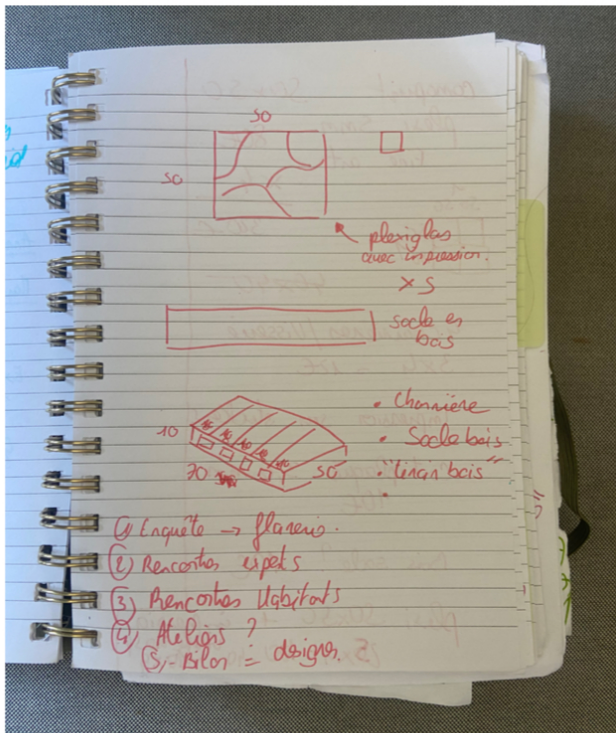 50
50
plexiglas
avec impression.
x 5
socle en
bois
10
• Charnière
• Socle bois
70
50
① Enquête →
② Rencontres experts
③ Rencontres Habitants
④ Ateliers ?
⑤ - Bilan = designer.